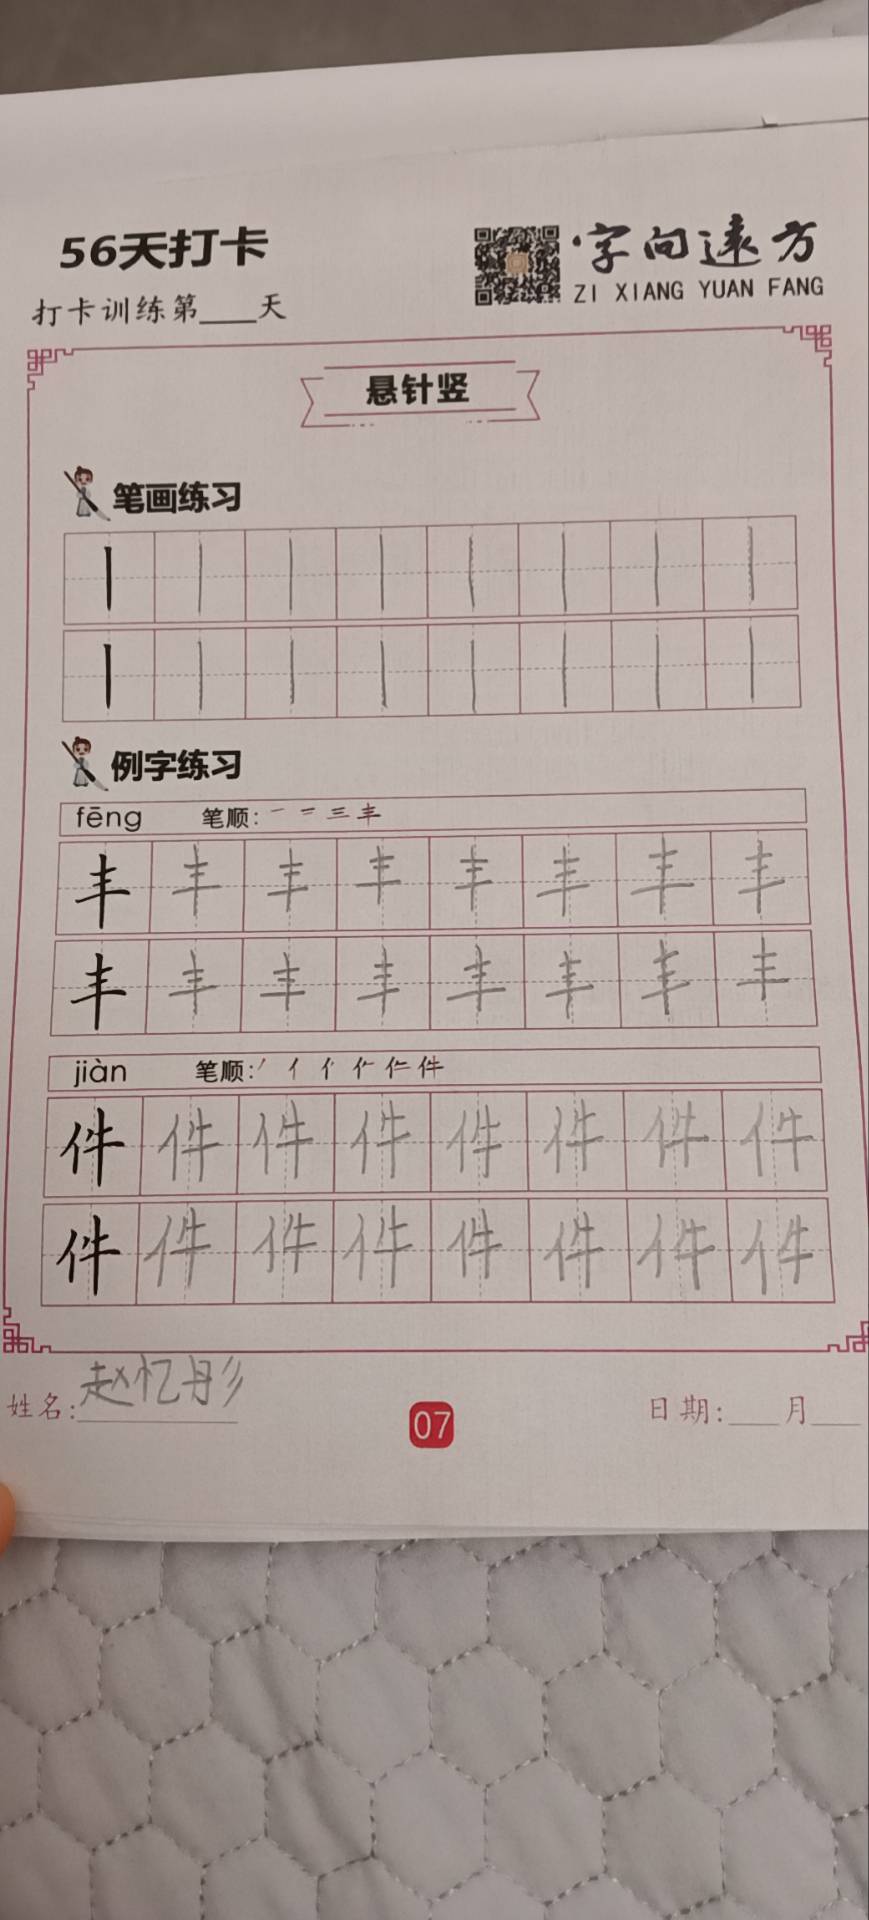 56天打卡
字向远方
ZI XIANG YUAN FANG
打卡训练第____天
悬针竖
笔画练习
丨 丨 丨 丨 丨 丨 丨 丨
丨 丨 丨 丨 丨 丨 丨 丨
例字练习
fēng 笔顺: 一 二 三 丰
丰 丰 丰 丰 丰 丰 丰 丰
丰 丰 丰 丰 丰 丰 丰 丰
jiàn 笔顺:
件 件 件 件 件 件 件 件
件 件 件 件 件 件 件 件
姓名:赵忆彤
07
日期:____月____